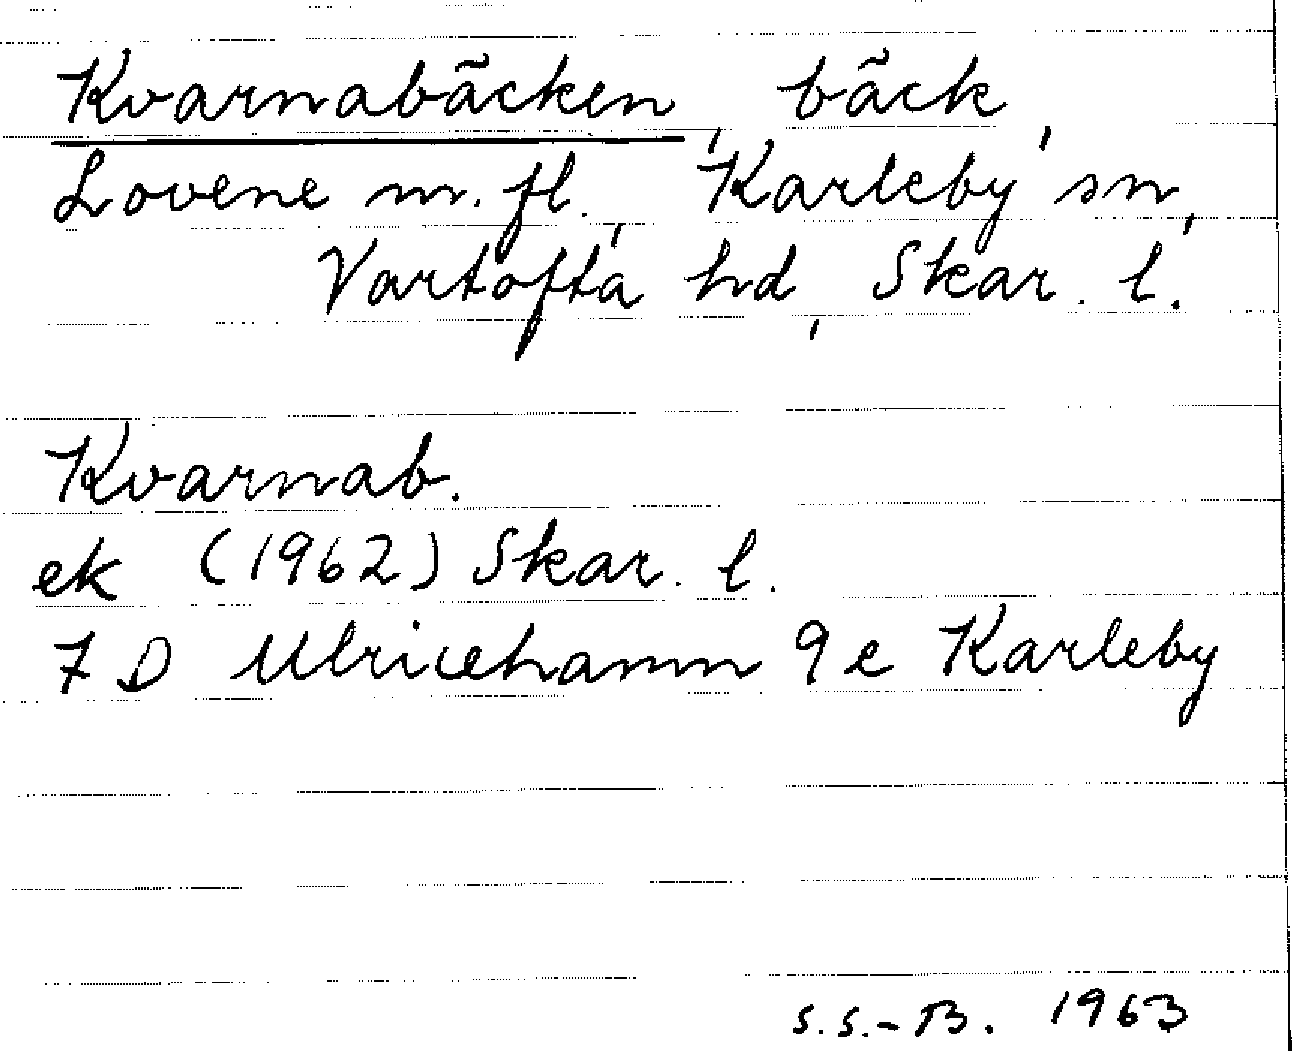 Kvarnabäcken, bäck,
Lovene m. fl., Karleby sn,
Vartofta hd, Skar. l.
Kvarnab.
ek (1962) Skar. l.
7 D Ulricehamn 9 e Karleby
S.S.-B. 1963